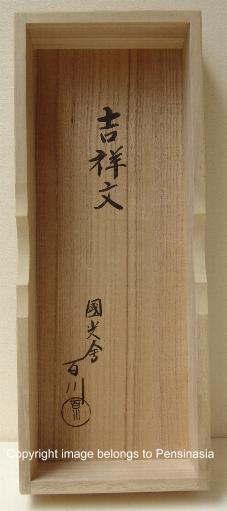 吉祥文
國光會
百川
Copyright image belongs to Pensinasia